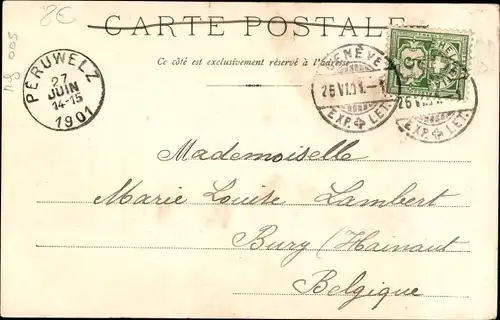 8€
CARTE POSTALE
Ce côté est exclusivement réservé à l'adresse
PÉRUWELZ
27
JUIN
14-15
1901
GENÈVE
26 VI.01.-1
EXP. LET.
HELVETIA
5
EXP. LET.
Mademoiselle
Marie Louise Lambert
Bury (Hainaut
Belgique